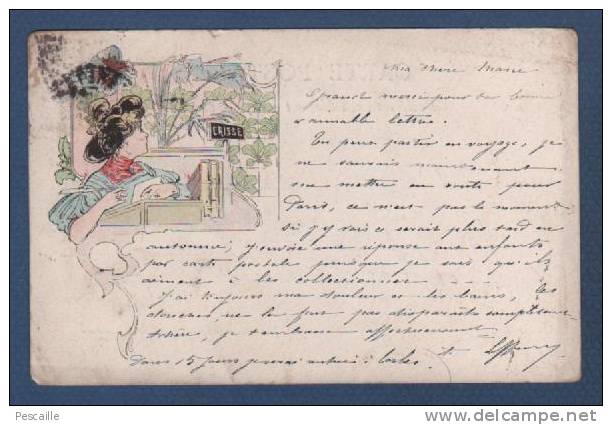 Ma chère Marie
Grand merci pour ta bonne
& aimable lettre.
Tu peux partir en voyage, je
ne saurais maintenant
me mettre en route pour
Paris, ce n'est pas le moment
si j'y vais ce serait plus tard en
automne, j'envoie une réponse aux enfants
par carte postale puisque je sais qu'ils
aiment à les collectionner
J'ai toujours ma douleur et les bains, les
douches, ne la font pas disparaître complètement
je t'embrasse affectueusement
Dans 15 jours je serai à
CAISSE
Pescaille
www.delcampe.net